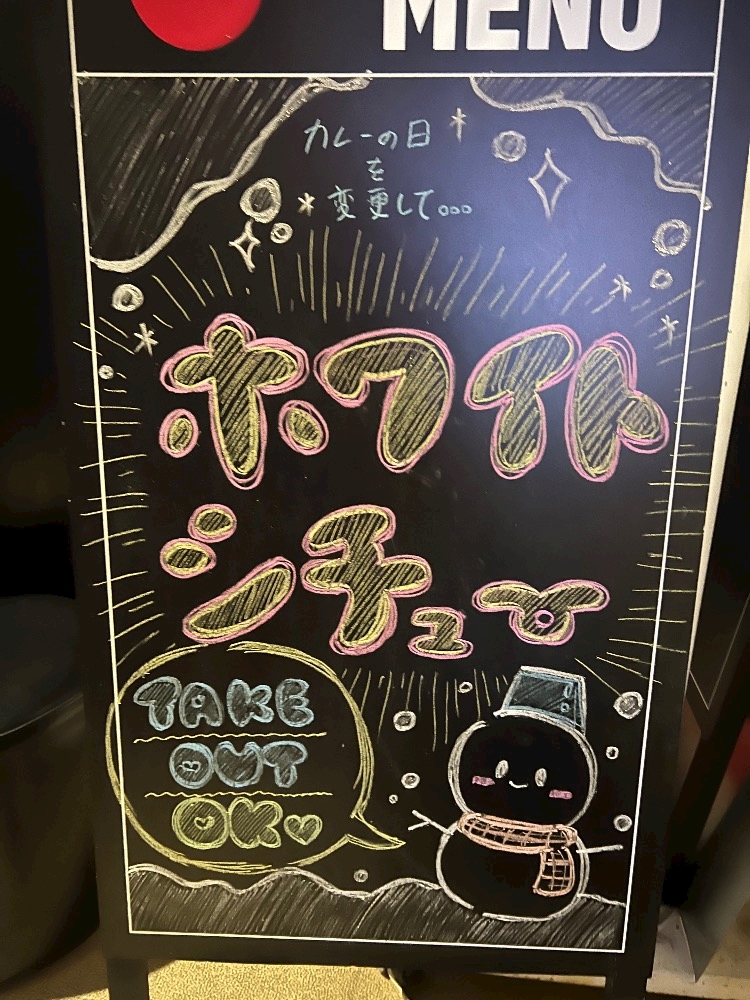 MENU
カレーの日
を
変更して...
ホワイト
シチュー
TAKE
OUT
OK♡